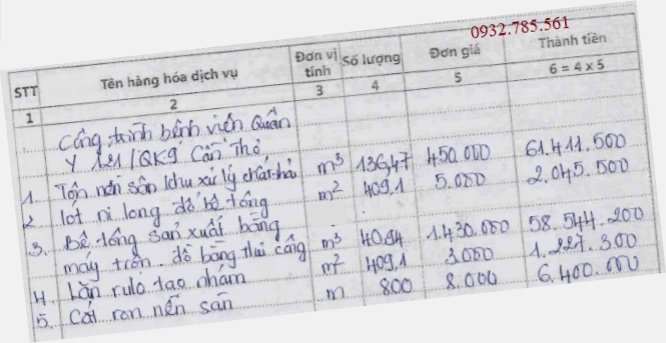 0932.785.561
STT Tên hàng hóa dịch vụ Đơn vị tính Số lượng Đơn giá Thành tiền
1 2 3 4 5 6 = 4 x 5
Công trình bệnh viện Quân
Y 121/QK9 Cần Thơ
1. Tôn nền sân khu xử lý chất thải m³ 136,47 450.000 61.411.500
2. lót ni long đổ bê tông m² 409,1 5.000 2.045.500
3. Bê tông sản xuất bằng
máy trộn đổ bằng thủ công m³ 40,94 1.430.000 58.544.200
4. Lăn rulo tạo nhám m² 409,1 3.000 1.227.300
5. Cắt ron nền sân m 800 8.000 6.400.000